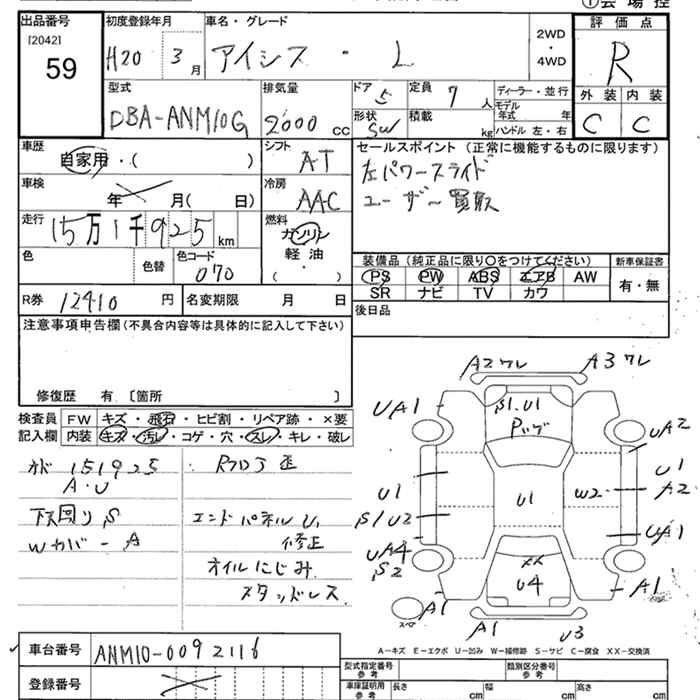 出品番号
[2042]
59
初度登録年月
H20 3月
車名・グレード
アイシス・L
2WD
・
4WD
評価点
R
外装 内装
C C
型式
DBA-ANM10G
排気量
2000 cc
ドア 5
形状 SW
定員 7人
積載 kg
ディーラー・並行
モデル年式 年
ハンドル 左・右
車歴
自家用・( )
シフト
AT
セールスポイント(正常に機能するものに限ります)
左パワースライド
ユーザー買取
車検
年 月( 日)
冷房
AAC
走行
15万1千925km
燃料
ガソリン
軽油
( )
色
色替
色コード
070
装備品(純正品に限り〇をつけてください)
新車保証書
PS PW ABS エアB AW
SR ナビ TV カワ
有・無
R券 12410円
名変期限 月 日
後日品
注意事項申告欄(不具合内容等は具体的に記入して下さい)
修復歴 有〔箇所 〕
検査員記入欄
FW キズ・飛石・ヒビ割・リペア跡・×要
内装 キズ・汚レ・コゲ・穴・スレ・キレ・破レ
151925
A・U
下回り S
Wカバー A
エンドパネル U,
修正
オイルにじみ
スタッドレス
A2ワレ A3ワレ
UA1 S1.U1
UA2
U1 U1
A2
U1 W2
S1U2
UA1
UA4
S2
XX
U4
A1 A1
スペア
A1 U3
A-キズ E-エクボ U-凹み W-補修跡 S-サビ C-腐食 XX-交換済
車台番号 ANM10-0092116
登録番号
型式指定番号
参考
類別区分番号
参考
車庫証明用
参考
長さ cm
幅 cm
高さ cm